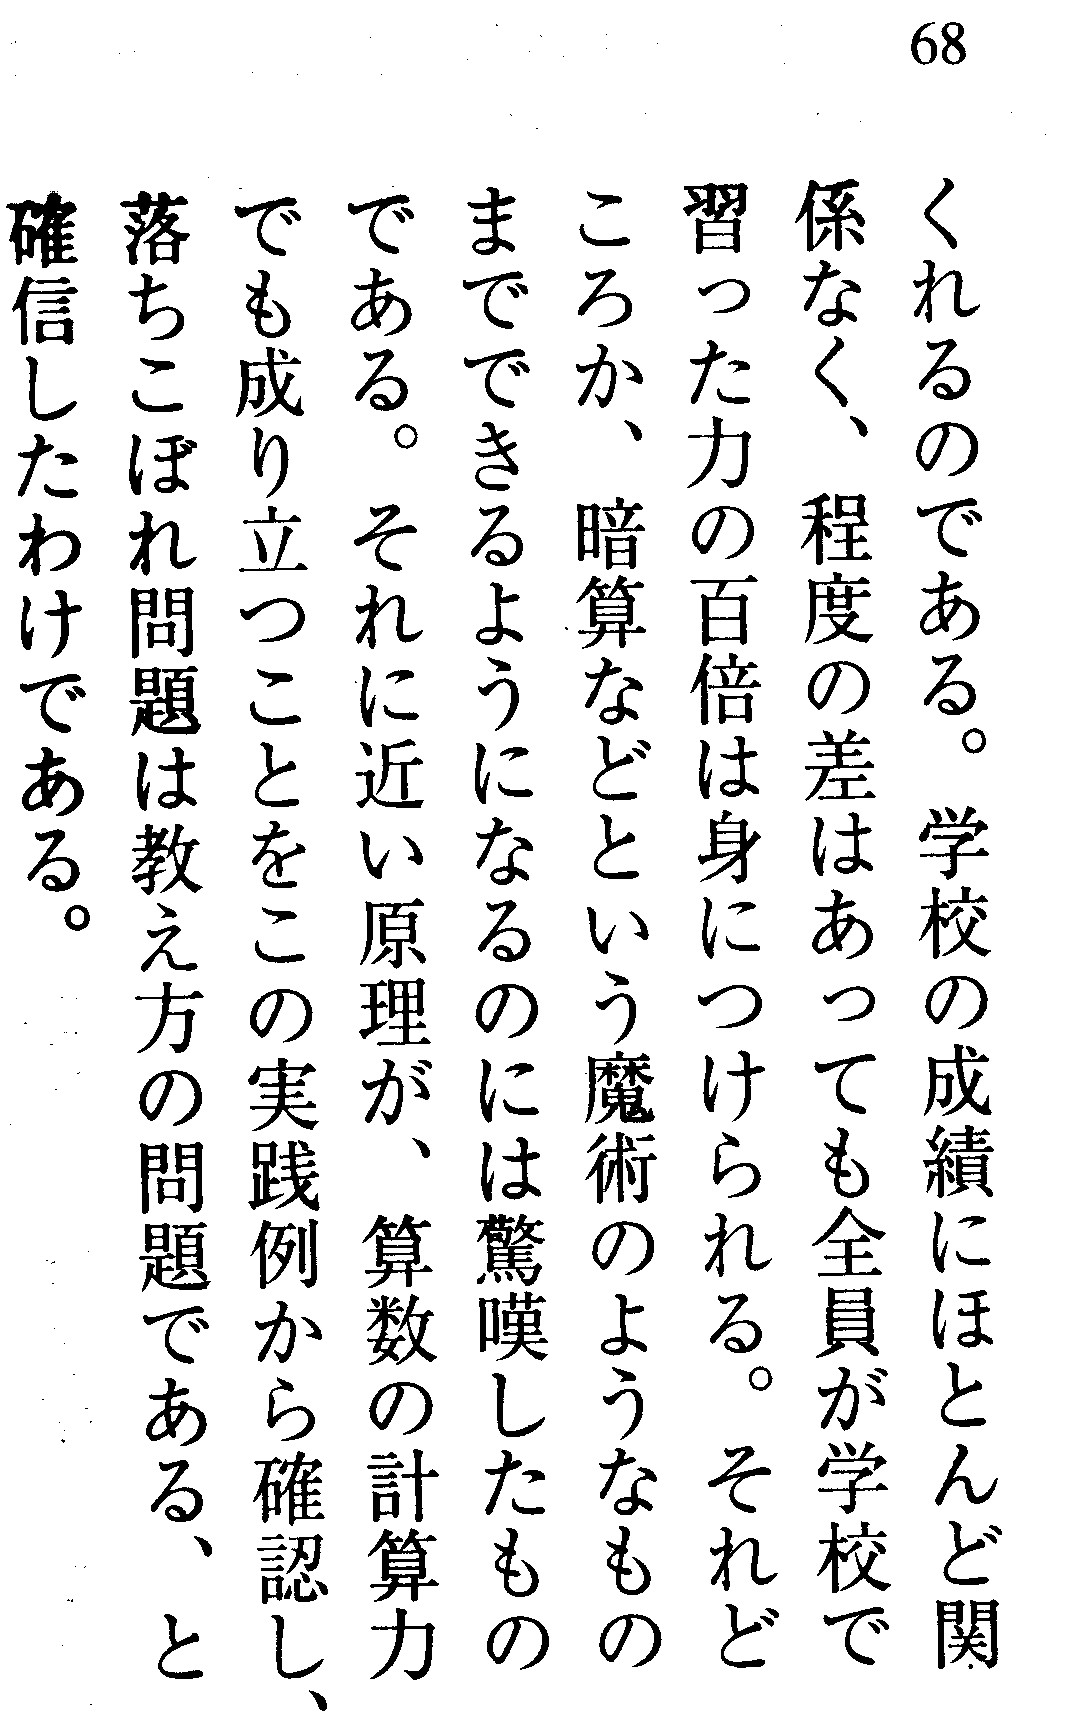 68
くれるのである。学校の成績にほとんど関
係なく、程度の差はあっても全員が学校で
習った力の百倍は身につけられる。それど
ころか、暗算などという魔術のようなもの
までできるようになるのには驚嘆したもの
である。それに近い原理が、算数の計算力
でも成り立つことをこの実践例から確認し、
落ちこぼれ問題は教え方の問題である、と
確信したわけである。